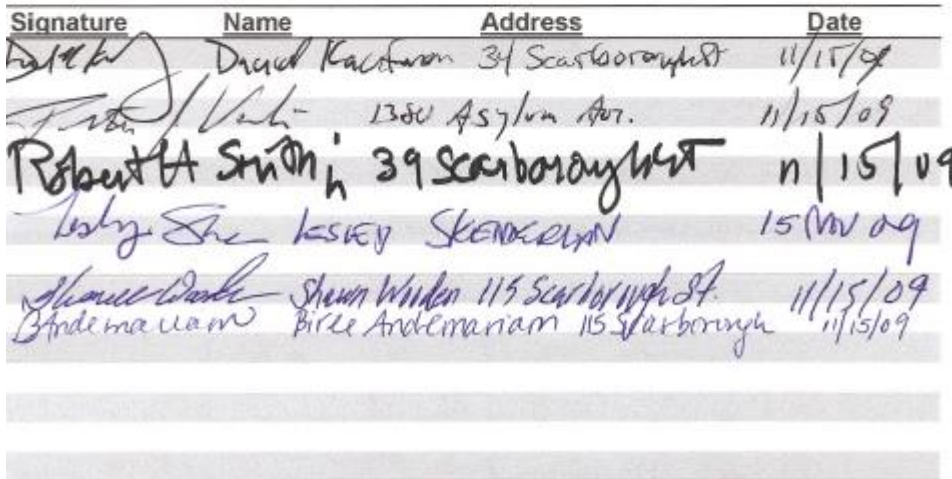 Signature Name Address Date
David Kaufman 34 Scarborough St 11/15/09
1380 Asylum Av. 11/15/09
Robert H Smith 39 Scarborough St 11/15/09
Lesley LESLEY SKENDERIAN 15 NOV 09
Shawn Worden 115 Scarborough St. 11/15/09
BAndemariam Birke Andemariam 115 Scarborough 11/15/09